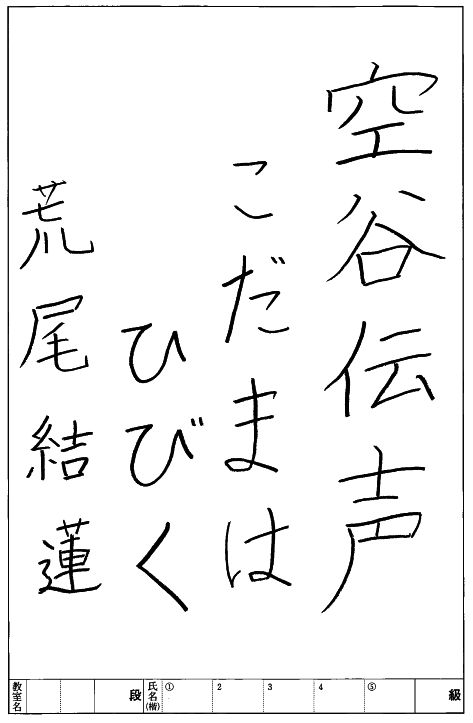 空谷伝声
こだまは
ひびく
荒尾結蓮
教室名 段 氏名(楷) ① 2 3 4 ⑤ 級